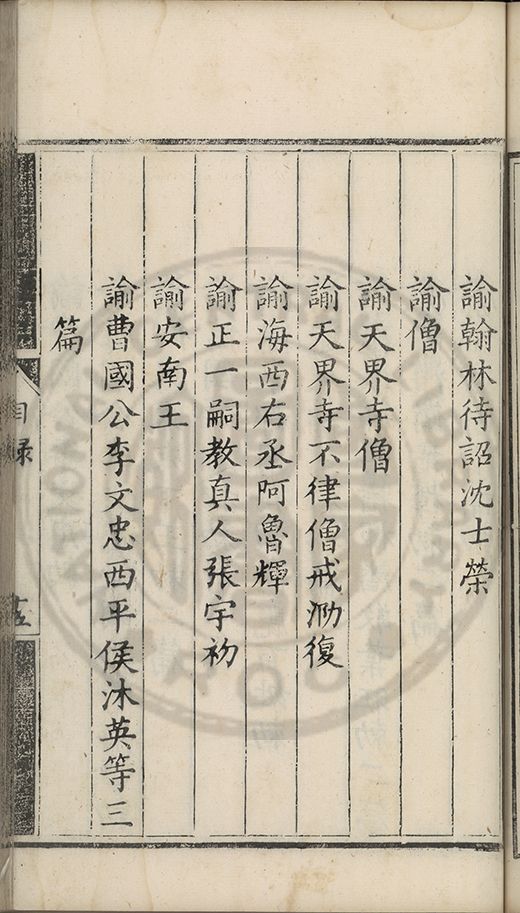 諭翰林待詔沈士榮
諭僧
諭天界寺僧
諭天界寺不律僧戒泐復
諭海西右丞阿魯輝
諭正一嗣教真人張宇初
諭安南王
諭曹國公李文忠西平侯沐英等三
篇
目録